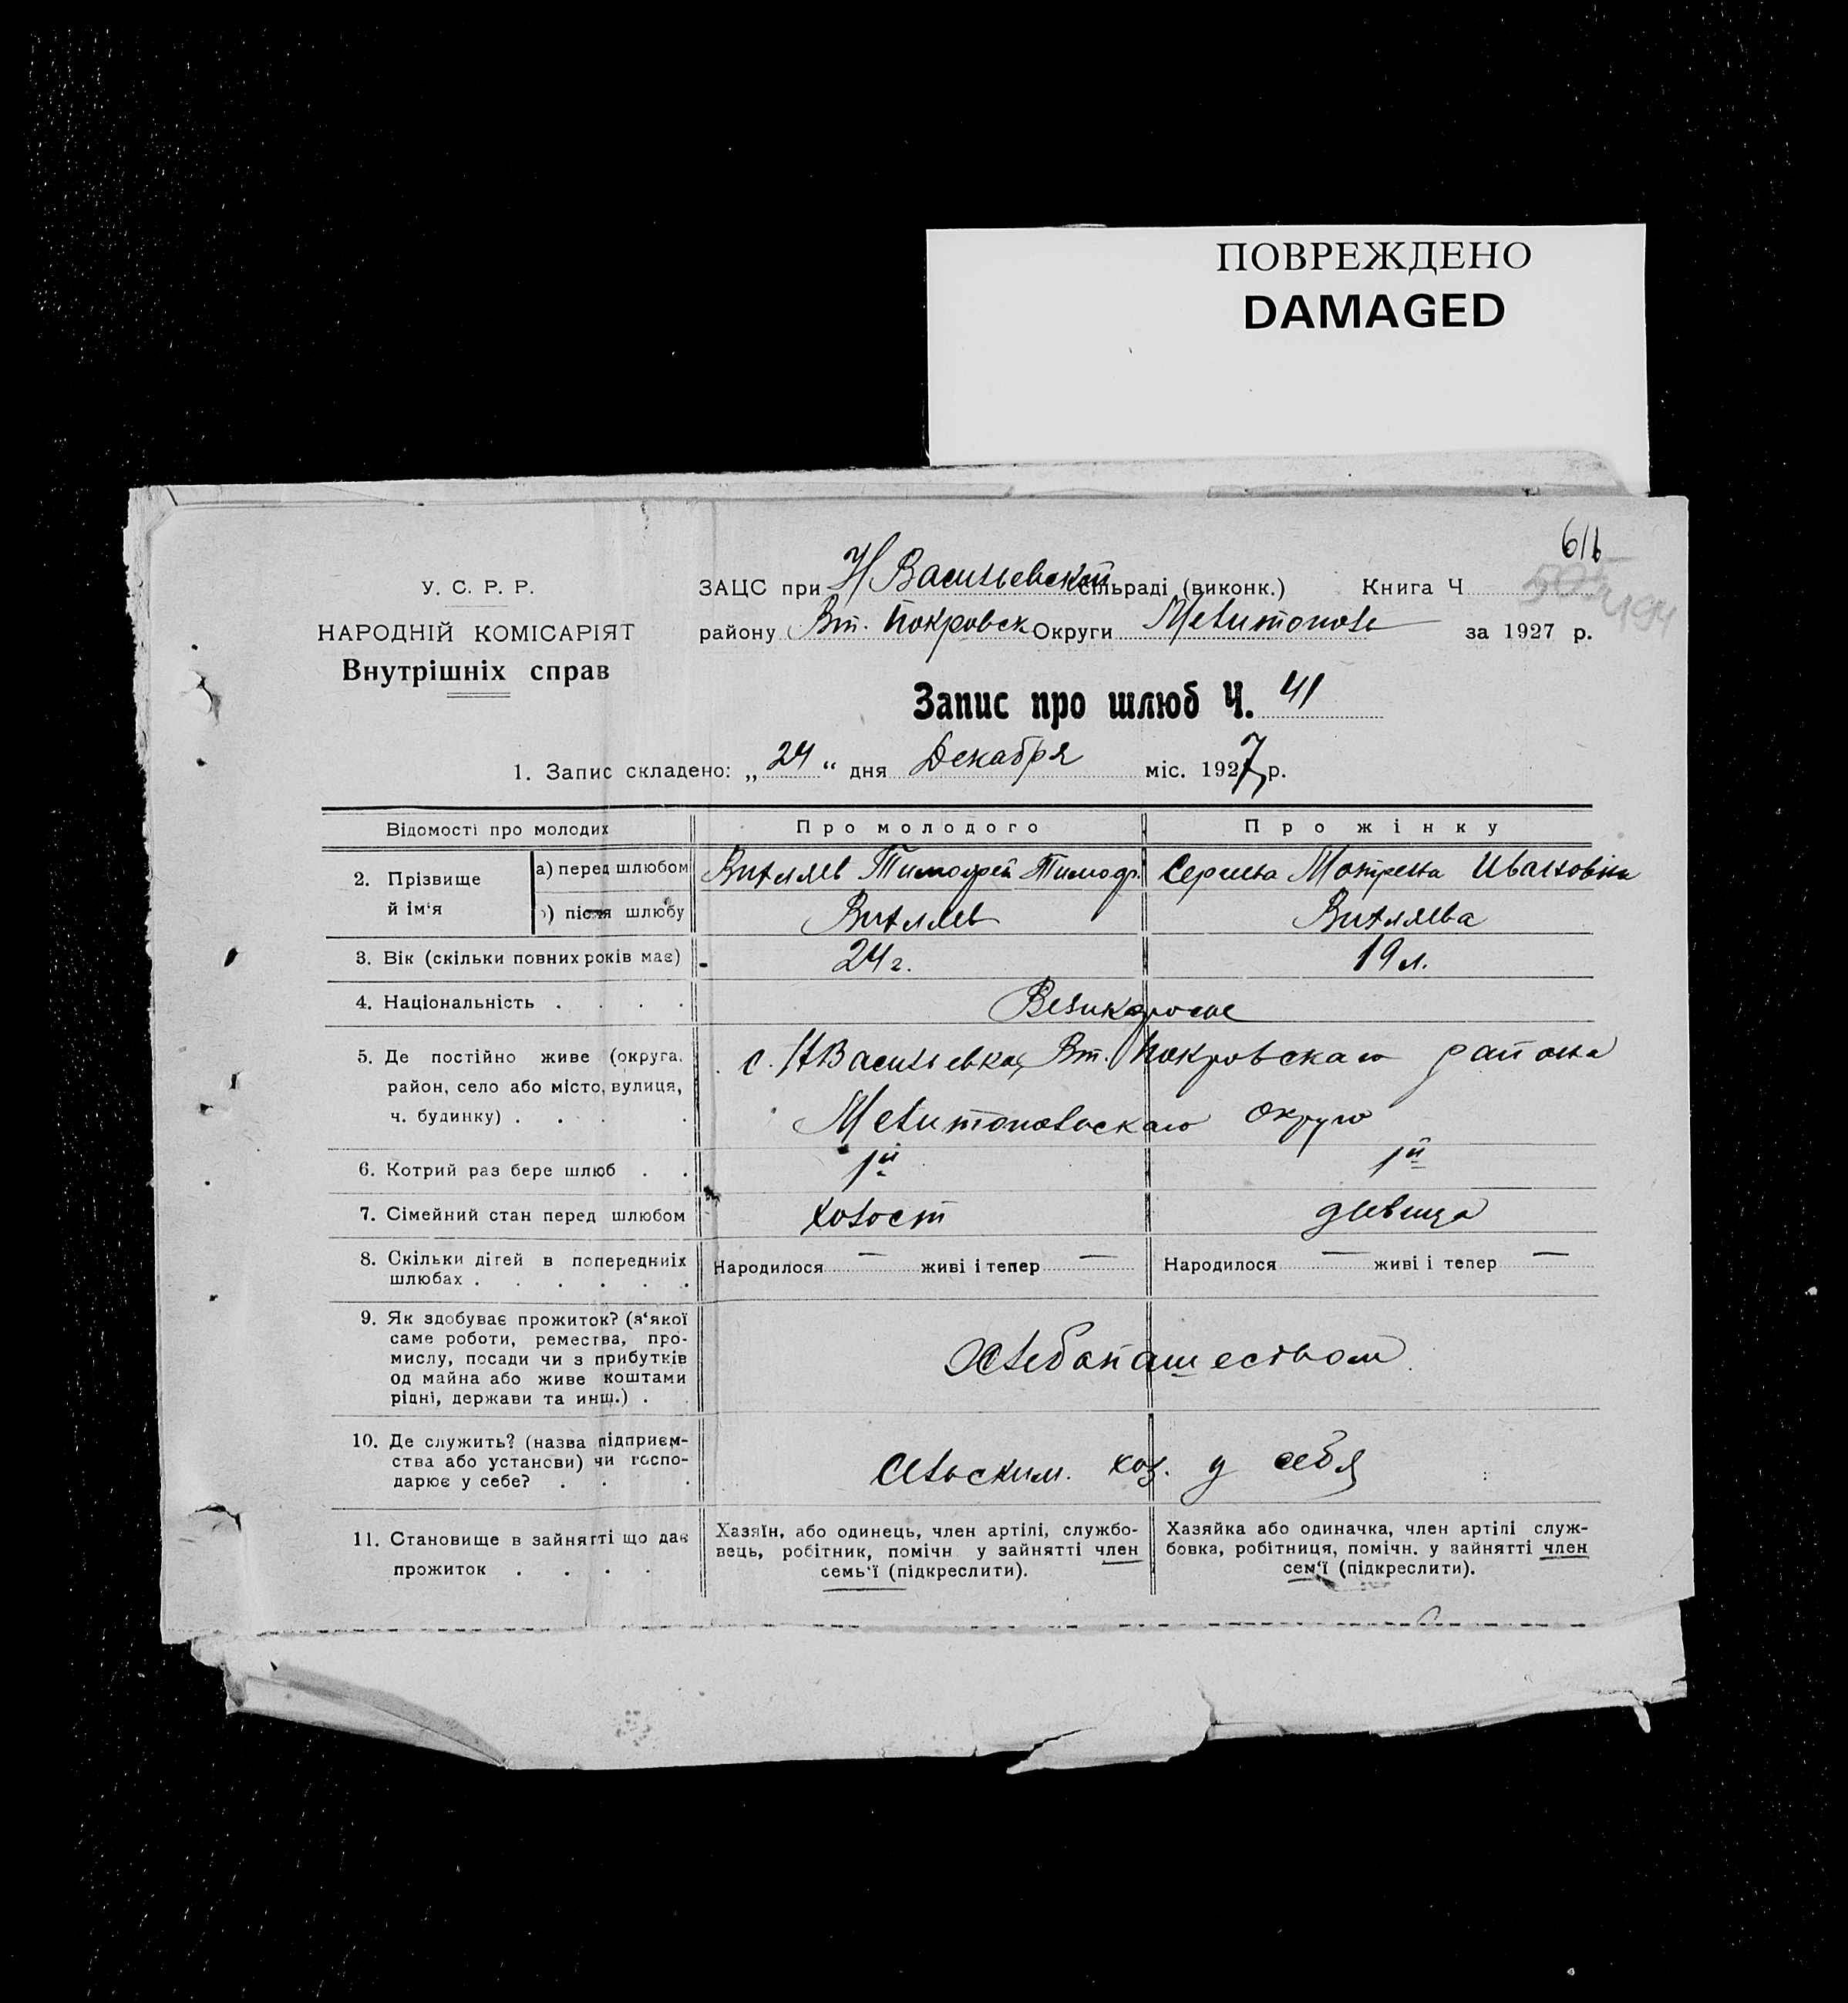 ПОВРЕЖДЕНО
DAMAGED
У. С. Р. Р.
НАРОДНІЙ КОМІСАРІЯТ
Внутрішніх справ
ЗАЦС при Н Васильевской сільраді (виконк.) Книга Ч
району Вт. Покровск Округи Мелитополь за 1927 р.
Запис про шлюб Ч. 41
1. Запис складено: „24“ дня Декабря міс. 1927 р.
Відомості про молодих Про молодого Про жінку
2. Прізвище й ім‘я
а) перед шлюбом Тимофей Тимоф. Мотрена Ивановна
б) після шлюбу
3. Вік (скільки повних років має) 24 г. 19 л.
4. Національність . . . . Великороссы
5. Де постійно живе (округа, с. Н Васильевка, Вт. Покровскаго района
район, село або місто, вулиця,
ч. будинку) . . . . Мелитопольскаго округа
6. Котрий раз бере шлюб . . 1й 1й
7. Сімейний стан перед шлюбом холост девица
8. Скільки дітей в попередниіх Народилося — живі і тепер — Народилося — живі і тепер —
шлюбах . . . . . .
9. Як здобуває прожиток? (я‘якої
саме роботи, ремества, про-
мислу, посади чи з прибутків Хлебопашеством
од майна або живе коштами
рідні, держави та инш.) .
10. Де служить? (назва підприєм-
ства або установи) чи госпо- Сельским. хоз. у себя
дарює у себе? . . .
11. Становище в зайнятті що дає
прожиток . . . .
Хазяїн, або одинець, член артілі, службо-
вець, робітник, помічн у зайнятті член
семь‘ї (підкреслити).
Хазяйка або одиначка, член артілі служ-
бовка, робітниця, помічн. у зайнятті член
сем‘ї (підкреслити).